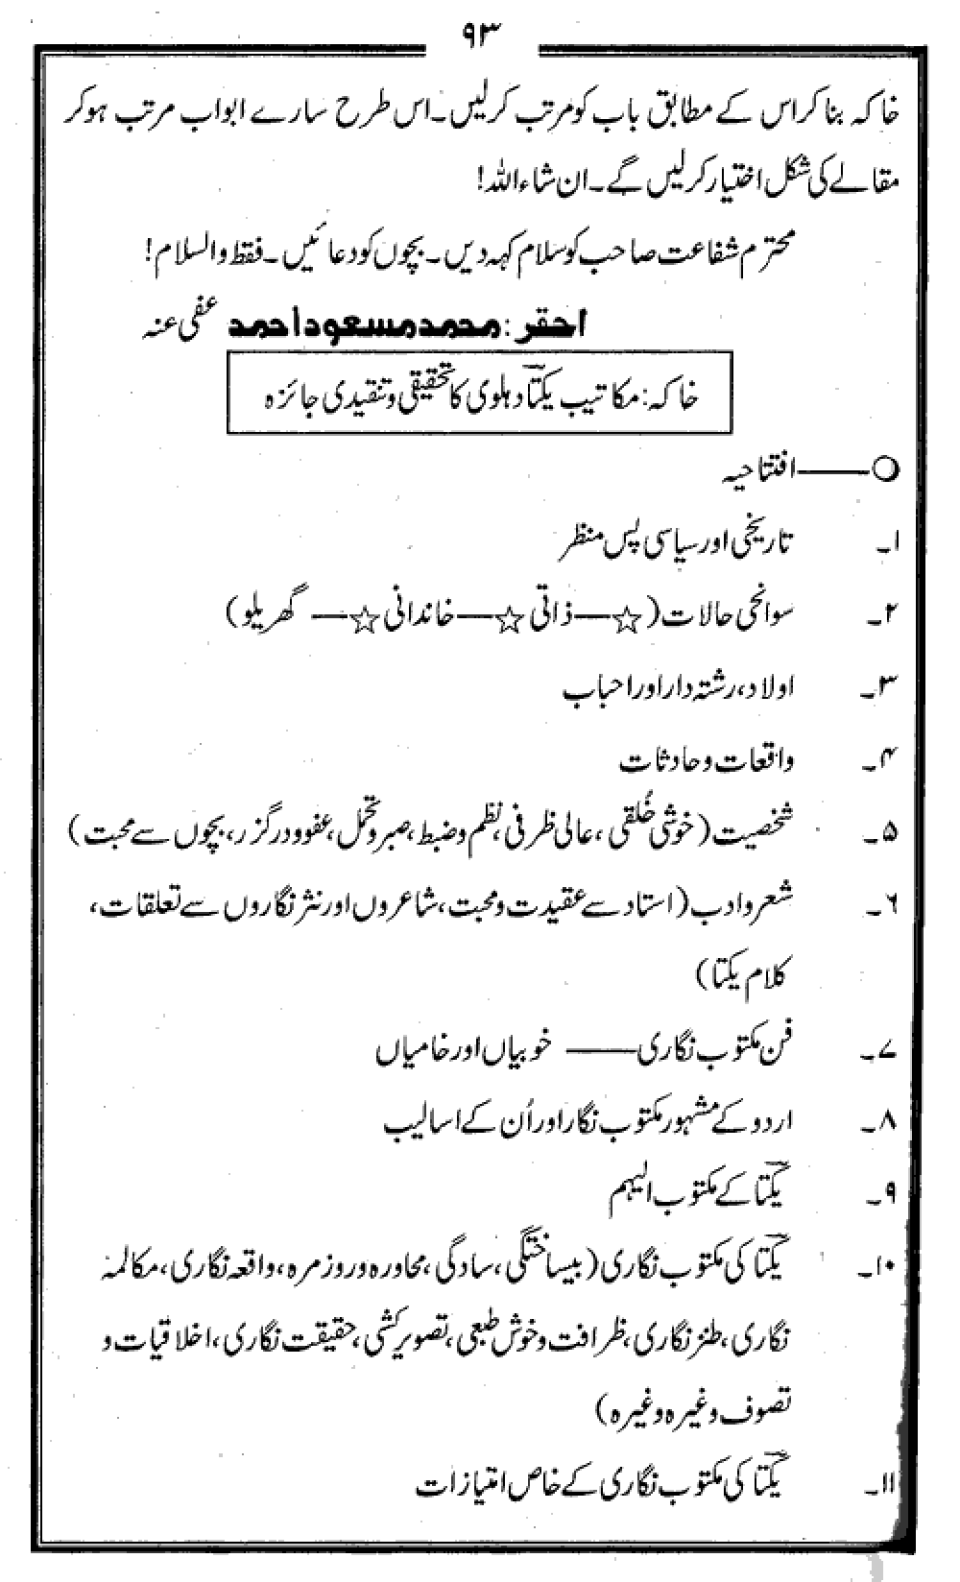 ۹۳
خاکہ بنا کر اس کے مطابق باب کو مرتب کرلیں۔ اس طرح سارے ابواب مرتب ہوکر
مقالے کی شکل اختیار کرلیں گے۔ ان شاء اللہ!
محترم شفاعت صاحب کو سلام کہہ دیں۔ بچوں کو دعائیں۔ فقط والسلام!
احقر : محمد مسعود احمد عفی عنہ
خاکہ: مکاتیب یکتاؔ دہلوی کا تحقیقی و تنقیدی جائزہ
○—— افتتاحیہ
۱۔ تاریخی اور سیاسی پس منظر
۲۔ سوانحی حالات (☆— ذاتی ☆— خاندانی ☆— گھریلو)
۳۔ اولاد، رشتہ دار اور احباب
۴۔ واقعات و حادثات
۵۔ شخصیت (خوشی خُلقی، عالی ظرفی، نظم و ضبط، صبر و تحمل، عفو و درگزر، بچوں سے محبت)
۶۔ شعر و ادب (استاد سے عقیدت و محبت، شاعروں اور نثر نگاروں سے تعلقات،
کلام یکتا)
۷۔ فن مکتوب نگاری —— خوبیاں اور خامیاں
۸۔ اردو کے مشہور مکتوب نگار اور اُن کے اسالیب
۹۔ یکتاؔ کے مکتوب الیہم
۱۰۔ یکتاؔ کی مکتوب نگاری (بیساختگی، سادگی، محاورہ و روزمرہ، واقعہ نگاری، مکالمہ
نگاری، طنز نگاری، ظرافت و خوش طبعی، تصویر کشی، حقیقت نگاری، اخلاقیات و
تصوف وغیرہ وغیرہ)
۱۱۔ یکتاؔ کی مکتوب نگاری کے خاص امتیازات